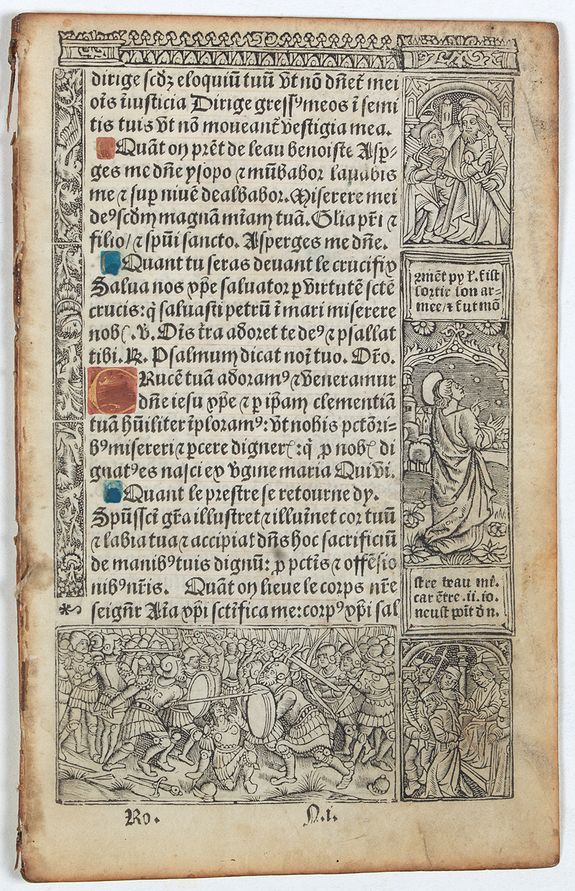 dirige scdꝫ eloquiū tuū vt nō dn̄et̄ mei
oīs īiusticia Dirige gressꝰ meos ī semi
tis tuis vt nō moueant̄ vestigia mea.
Quāt on prēt de leau benoiste Asp⸗
ges me dn̄e ysopo ⁊ mūdabor lauabis
me ⁊ suꝑ niuē dealbabor. Miserere mei
deꝰ scdm̄ magnā mīam tuā. Glīa pr̄i ⁊
filio/ ⁊ spūi sancto. Asperges me dn̄e.
Quant tu seras deuant le crucifix
Salua nos xp̄e saluator ꝑ virtutē scte
crucis: q̄ saluasti petrū ī mari miserere
nob̄. ℣. Oīs t̄ra adoret te deꝰ ⁊ psallat
tibi. ℟. Psalmum dicat noī tuo. Or̄o.
Rucē tuā adoramꝰ ⁊ veneramur
dn̄e iesu xp̄e ⁊ ꝑ ip̄am clementiā
tuā hūiliter īploramꝰ: vt nobis pctōri⸗
bꝰ misereri ⁊ ꝑcere digner̄: q̄ ꝓ nob̄ di
gnatꝰ es nasci ex v̄gine maria Qui vi.
Quant le prestre se retourne dy.
Spūssci gr̄a illustret ⁊ illuīnet cor tuū
⁊ labia tua ⁊ accipiat dn̄s hoc sacrificiū
de manibꝰ tuis dignū: ꝓ pctīs ⁊ offēsio
nibꝰ nr̄is. Quāt on lieue le corps nr̄e
seignr̄ Aīa xp̄i sctīfica me: corpꝰ xp̄i sal
sortir son ar⸗
mee/ ⁊ fut mō
stre beau mi.
car ētre .ii. io.
neust poīt d n.
Ro.
N.i.